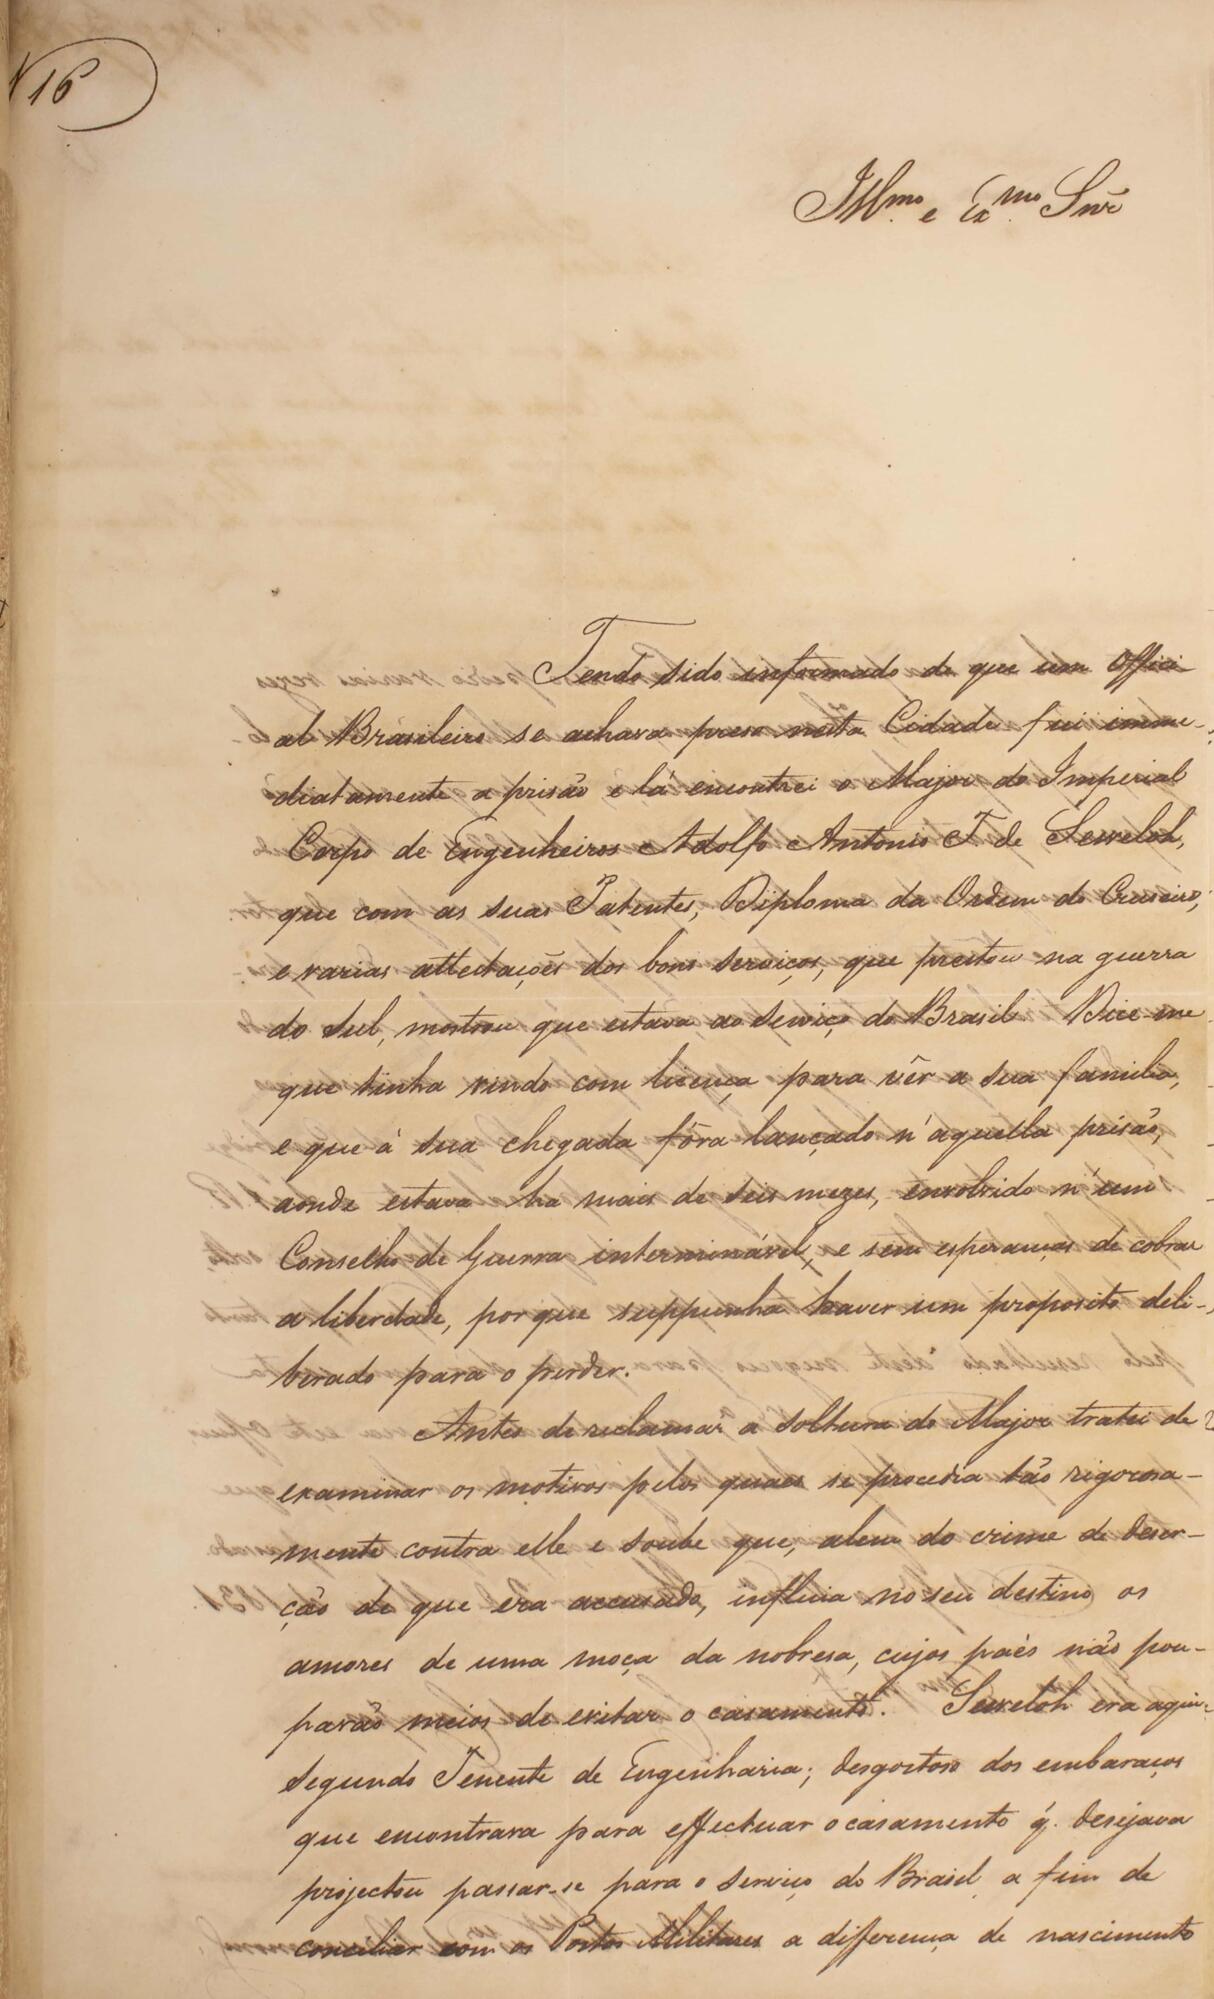 N 16
Illmo. e Exmo. Snr
Tendo sido informado de que um Offici
al Brasileiro se achava preso nesta Cidade fui imme-
diatamente a prisão e lá encontrei o Major do Imperial
Corpo de Engenheiros Adolfo Antonio F. de Seweloh,
que com as suas Patentes, Diploma da Ordem do Cruseiro,
e varias attestações dos bons serviços, que prestou na guerra
do Sul, mostrou que estava ao serviço do Brasil. Dice-me
que tinha vindo com licença para vêr a sua familia,
e que à sua chegada fôra lançado n'aquella prisão,
aonde estava ha mais de seis mezes, envolvido n'um
Conselho de Guerra interminável, e sem esperanças de cobrar
a liberdade, porque suppunha haver um proposito deli-
berado para o perder.
Antes de reclamar a soltura do Major tratei de
examinar os motivos pelos quaes se procedia tão rigorosa-
mente contra elle e soube que, alem do crime de deser-
ção de que era accusado, influia no seu destino os
amores de uma moça da nobresa, cujos paes não pou-
parão meios de evitar o casamento. Seweloh era aqui
segundo Tenente de Engenharia; desgostoso dos embaraços
que encontrara para effectuar o casamento q. desejava
projectou passar-se para o serviço do Brasil, a fim de
conciliar com os Postos Militares a differença de nascimento